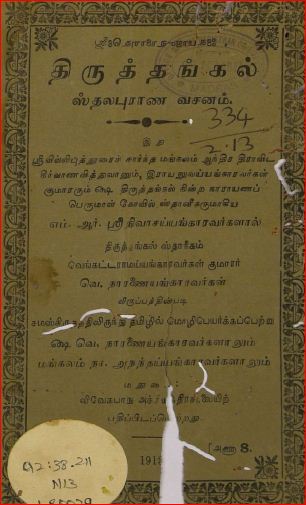 திருத்தங்கல்
ஸ்தலபுராண வசனம்.
334
2.13
இஃது
ஸ்ரீவில்லிபுத்தூரைச் சார்ந்த மங்கலம் ஆந்திர திராவிட
குமாரரும் ஷெ திருத்தங்கல் நின்ற நாராயணப்
பெருமாள் கோவில்
எம். ஆர். ஸ்ரீநிவாசய்யங்காரவர்களால்
திருத்தங்கல் ஸ்தானீகம்
வெங்கட்டராமய்யங்காரவர்கள் குமாரர்
வெ. நாரணையங்காரவர்கள்
விருப்பத்தின்படி
சமஸ்கிருதத்திலிருந்து தமிழில் மொழிபெயர்க்கப்பெற்று
ஷெ வெ. நாரணையங்காரவர்களாலும்
மங்கலம் நா. அநந்தய்யங்காரவர்களாலும்
மதுரை:
விவேகபாநு அச்சியந்திரசாலையிற்
பதிப்பிடப்பெற்றது.
[அணா 8.
Q12:38.211
N13